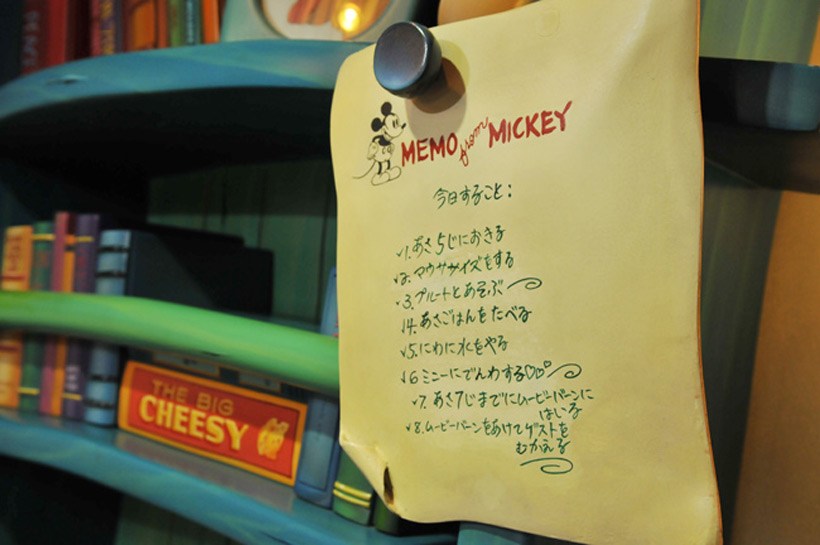 MEMO from MICKEY
今日すること:
✓1. あさ5じにおきる
✓2. マウササイズをする
✓3. プルートとあそぶ
✓4. あさごはんをたべる
✓5. にわに水をやる
✓6 ミニーにでんわする♡♡♡
✓7. あさ7じまでにムービーバーンに
はいる
✓8. ムービーバーンをあけてゲストを
むかえる
THE BIG
CHEESY